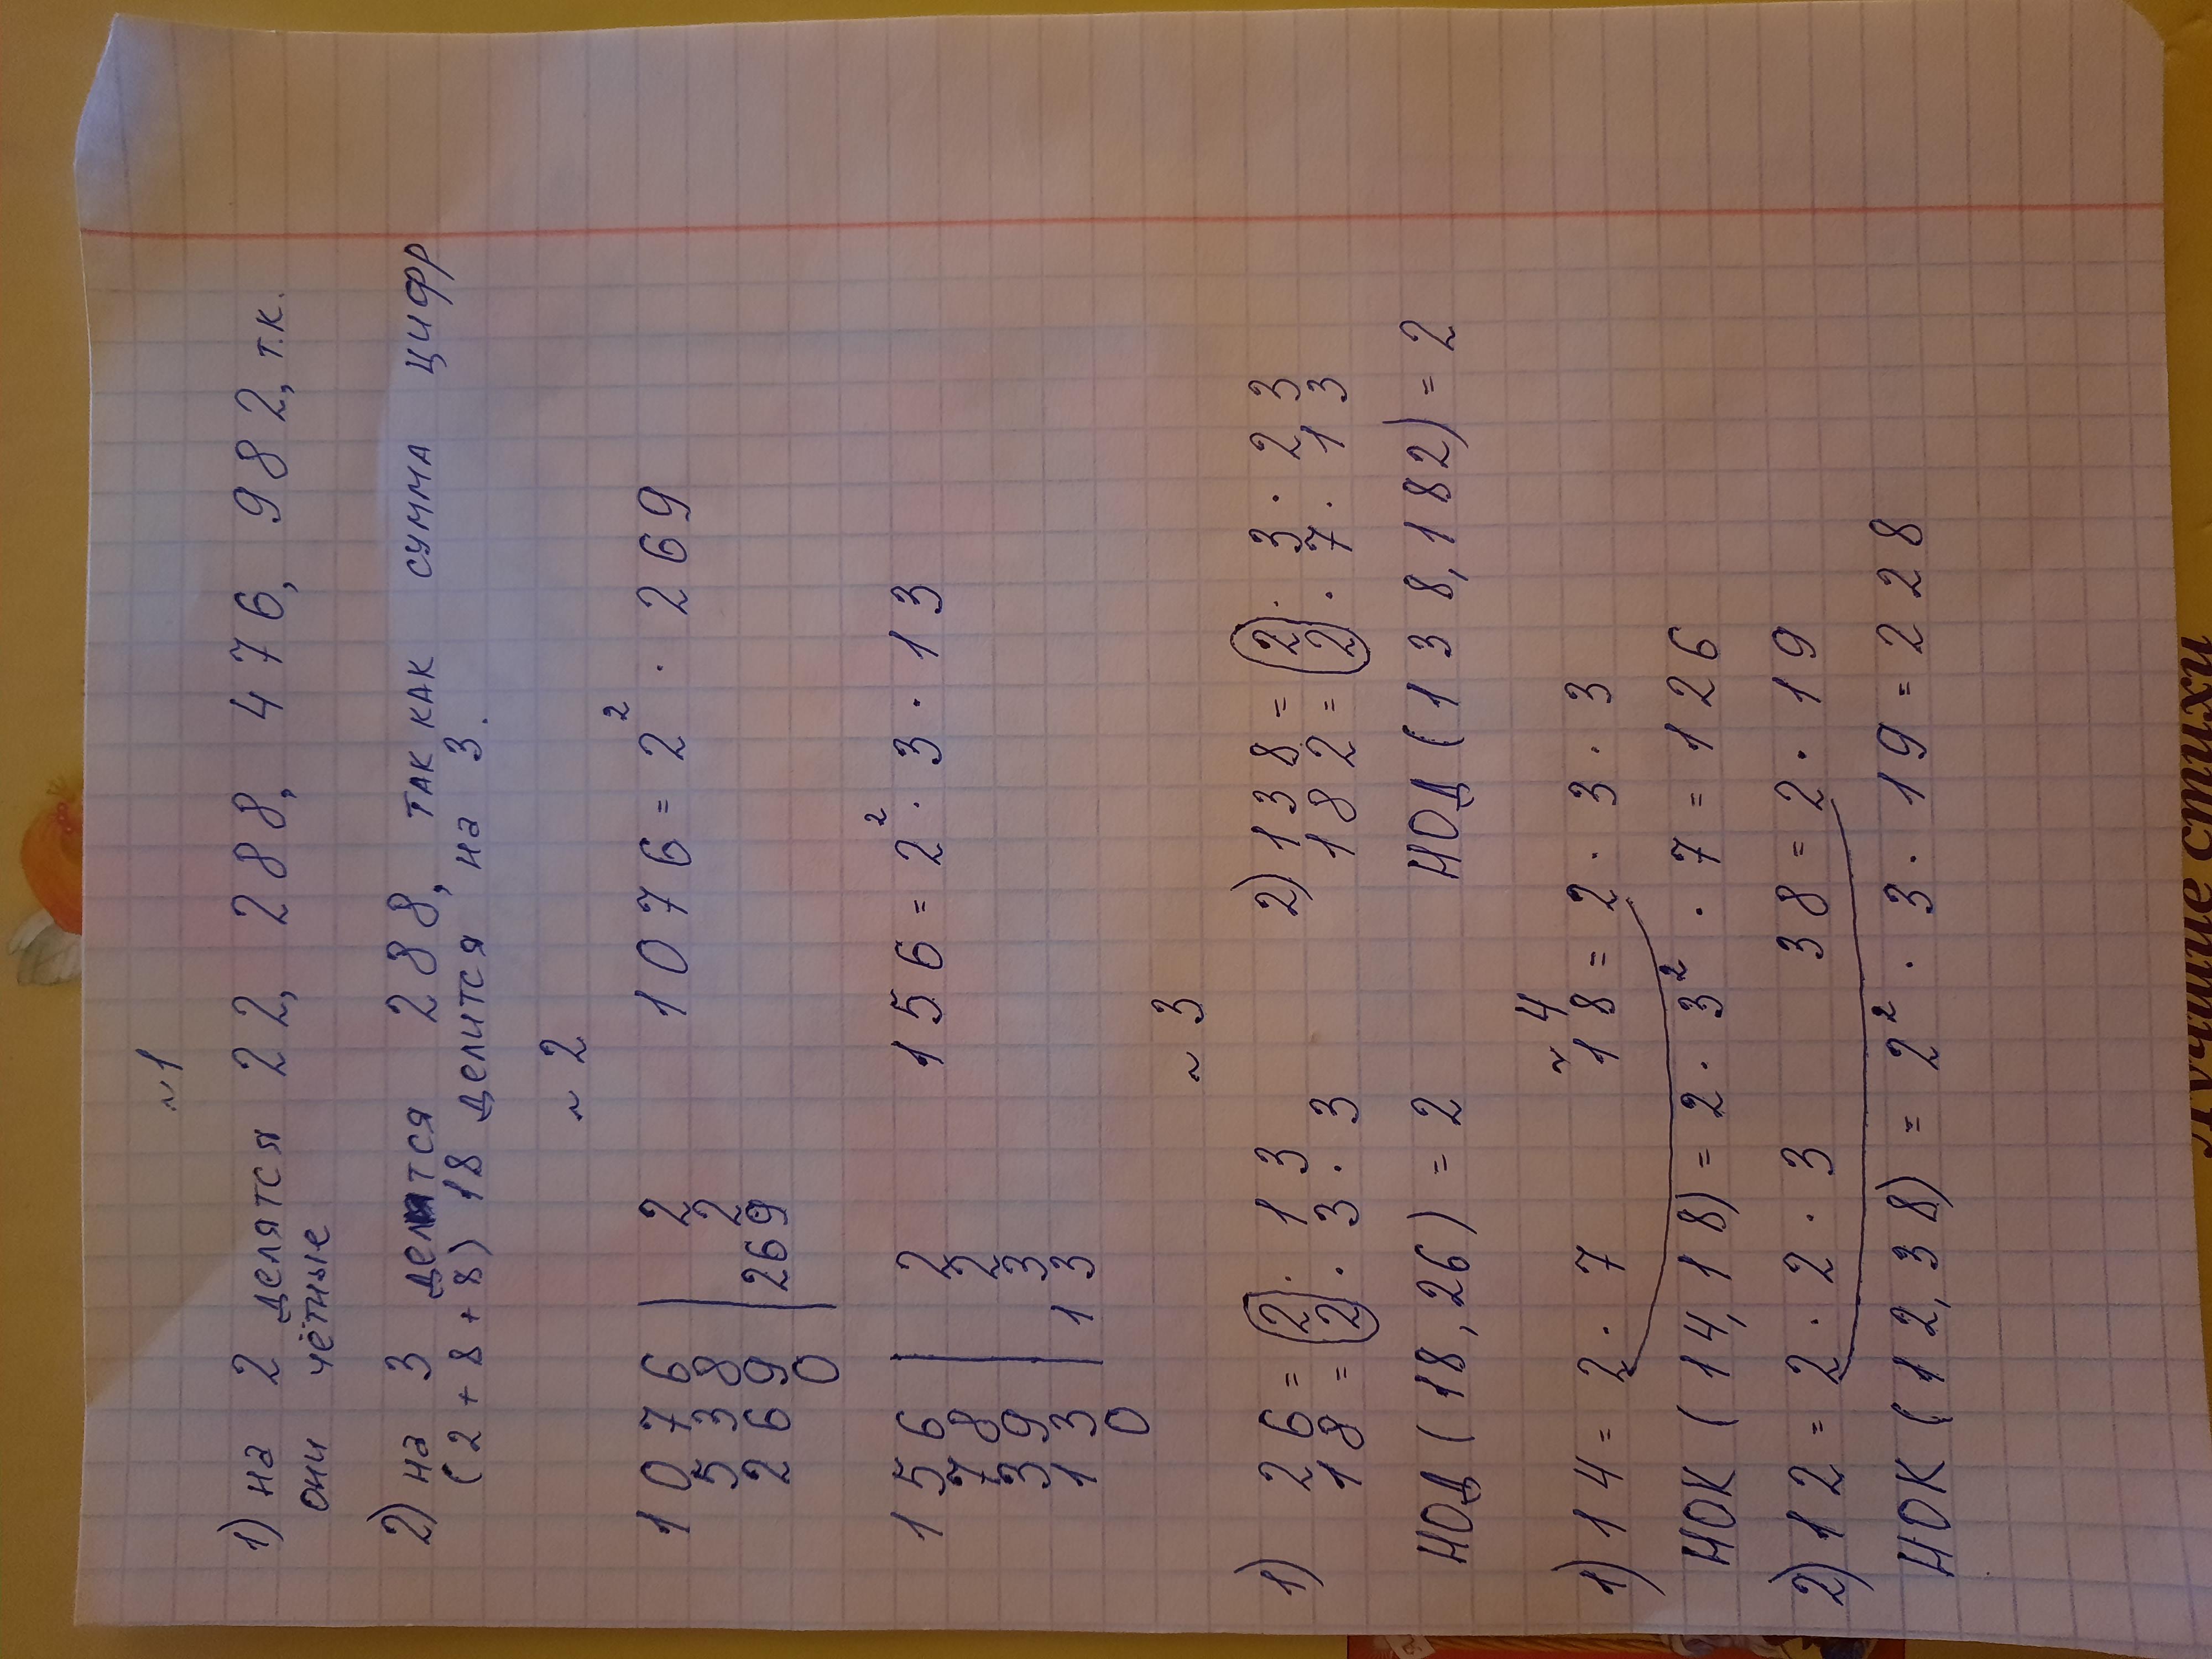 ~ 1
1) на 2 делятся 22, 288, 476, 982, т.к.
они чётные
2) на 3 делятся 288, так как сумма цифр
(2 + 8 + 8) 18 делится на 3.
~ 2
1076 | 2 1076 = 2² · 269
538 | 2
269 | 269
0
156 | 2 156 = 2² · 3 · 13
78 | 2
39 | 3
13 | 13
0
~ 3
1) 26 = 2 · 13 2) 138 = 2 · 3 · 23
18 = 2 · 3 · 3 182 = 2 · 7 · 13
НОД (18, 26) = 2 НОД (138, 182) = 2
~ 4
1) 14 = 2 · 7 18 = 2 · 3 · 3
НОК (14, 18) = 2 · 3² · 7 = 126
2) 12 = 2 · 2 · 3 38 = 2 · 19
НОК (12, 38) = 2² · 3 · 19 = 228
Лучшие стихи